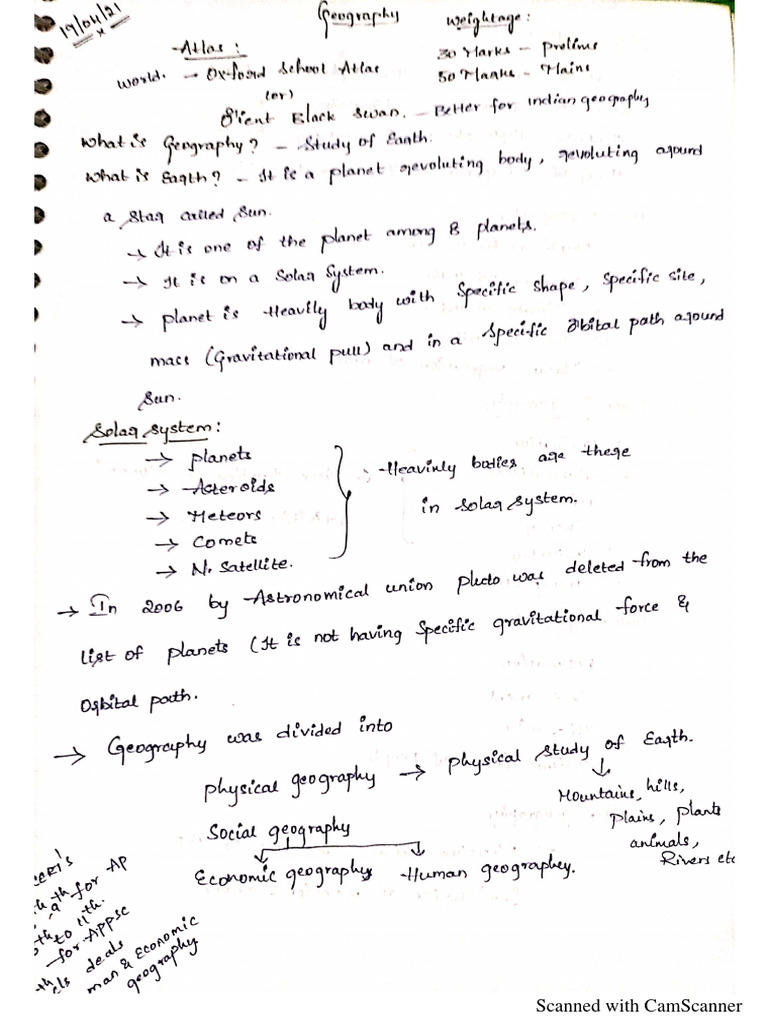 19/04/21
Geography
Weightage:
Atlas:
30 Marks - Prelims
World. → Oxford School Atlas
50 Marks - Mains
(or)
Orient Black Swan. - Better for Indian geography
What is Geography? - Study of Earth.
What is Earth? - It is a planet revoluting body, revoluting around
a star called Sun.
→ It is one of the planet among 8 planets.
→ It is on a Solar System.
→ planet is Heavily body with Specific shape, Specific site,
mass (Gravitational pull) and in a Specific orbital path around
Sun.
Solar system:
→ planets
→ Asteroids
→ Meteors
→ Comets
→ N. Satellite.
Heavinly bodies are there
in solar system.
→ In 2006 by Astronomical union pluto was deleted from the
list of planets (It is not having Specific gravitational force &
Orbital path.
→ Geography was divided into
physical geography → physical study of Earth.
Mountains, hills,
plains, plants
animals,
Rivers etc
Social geography
Economic geography Human geographey.
for AP
to 11th.
for APPSC
deals
man & Economic
geography
Scanned with CamScanner